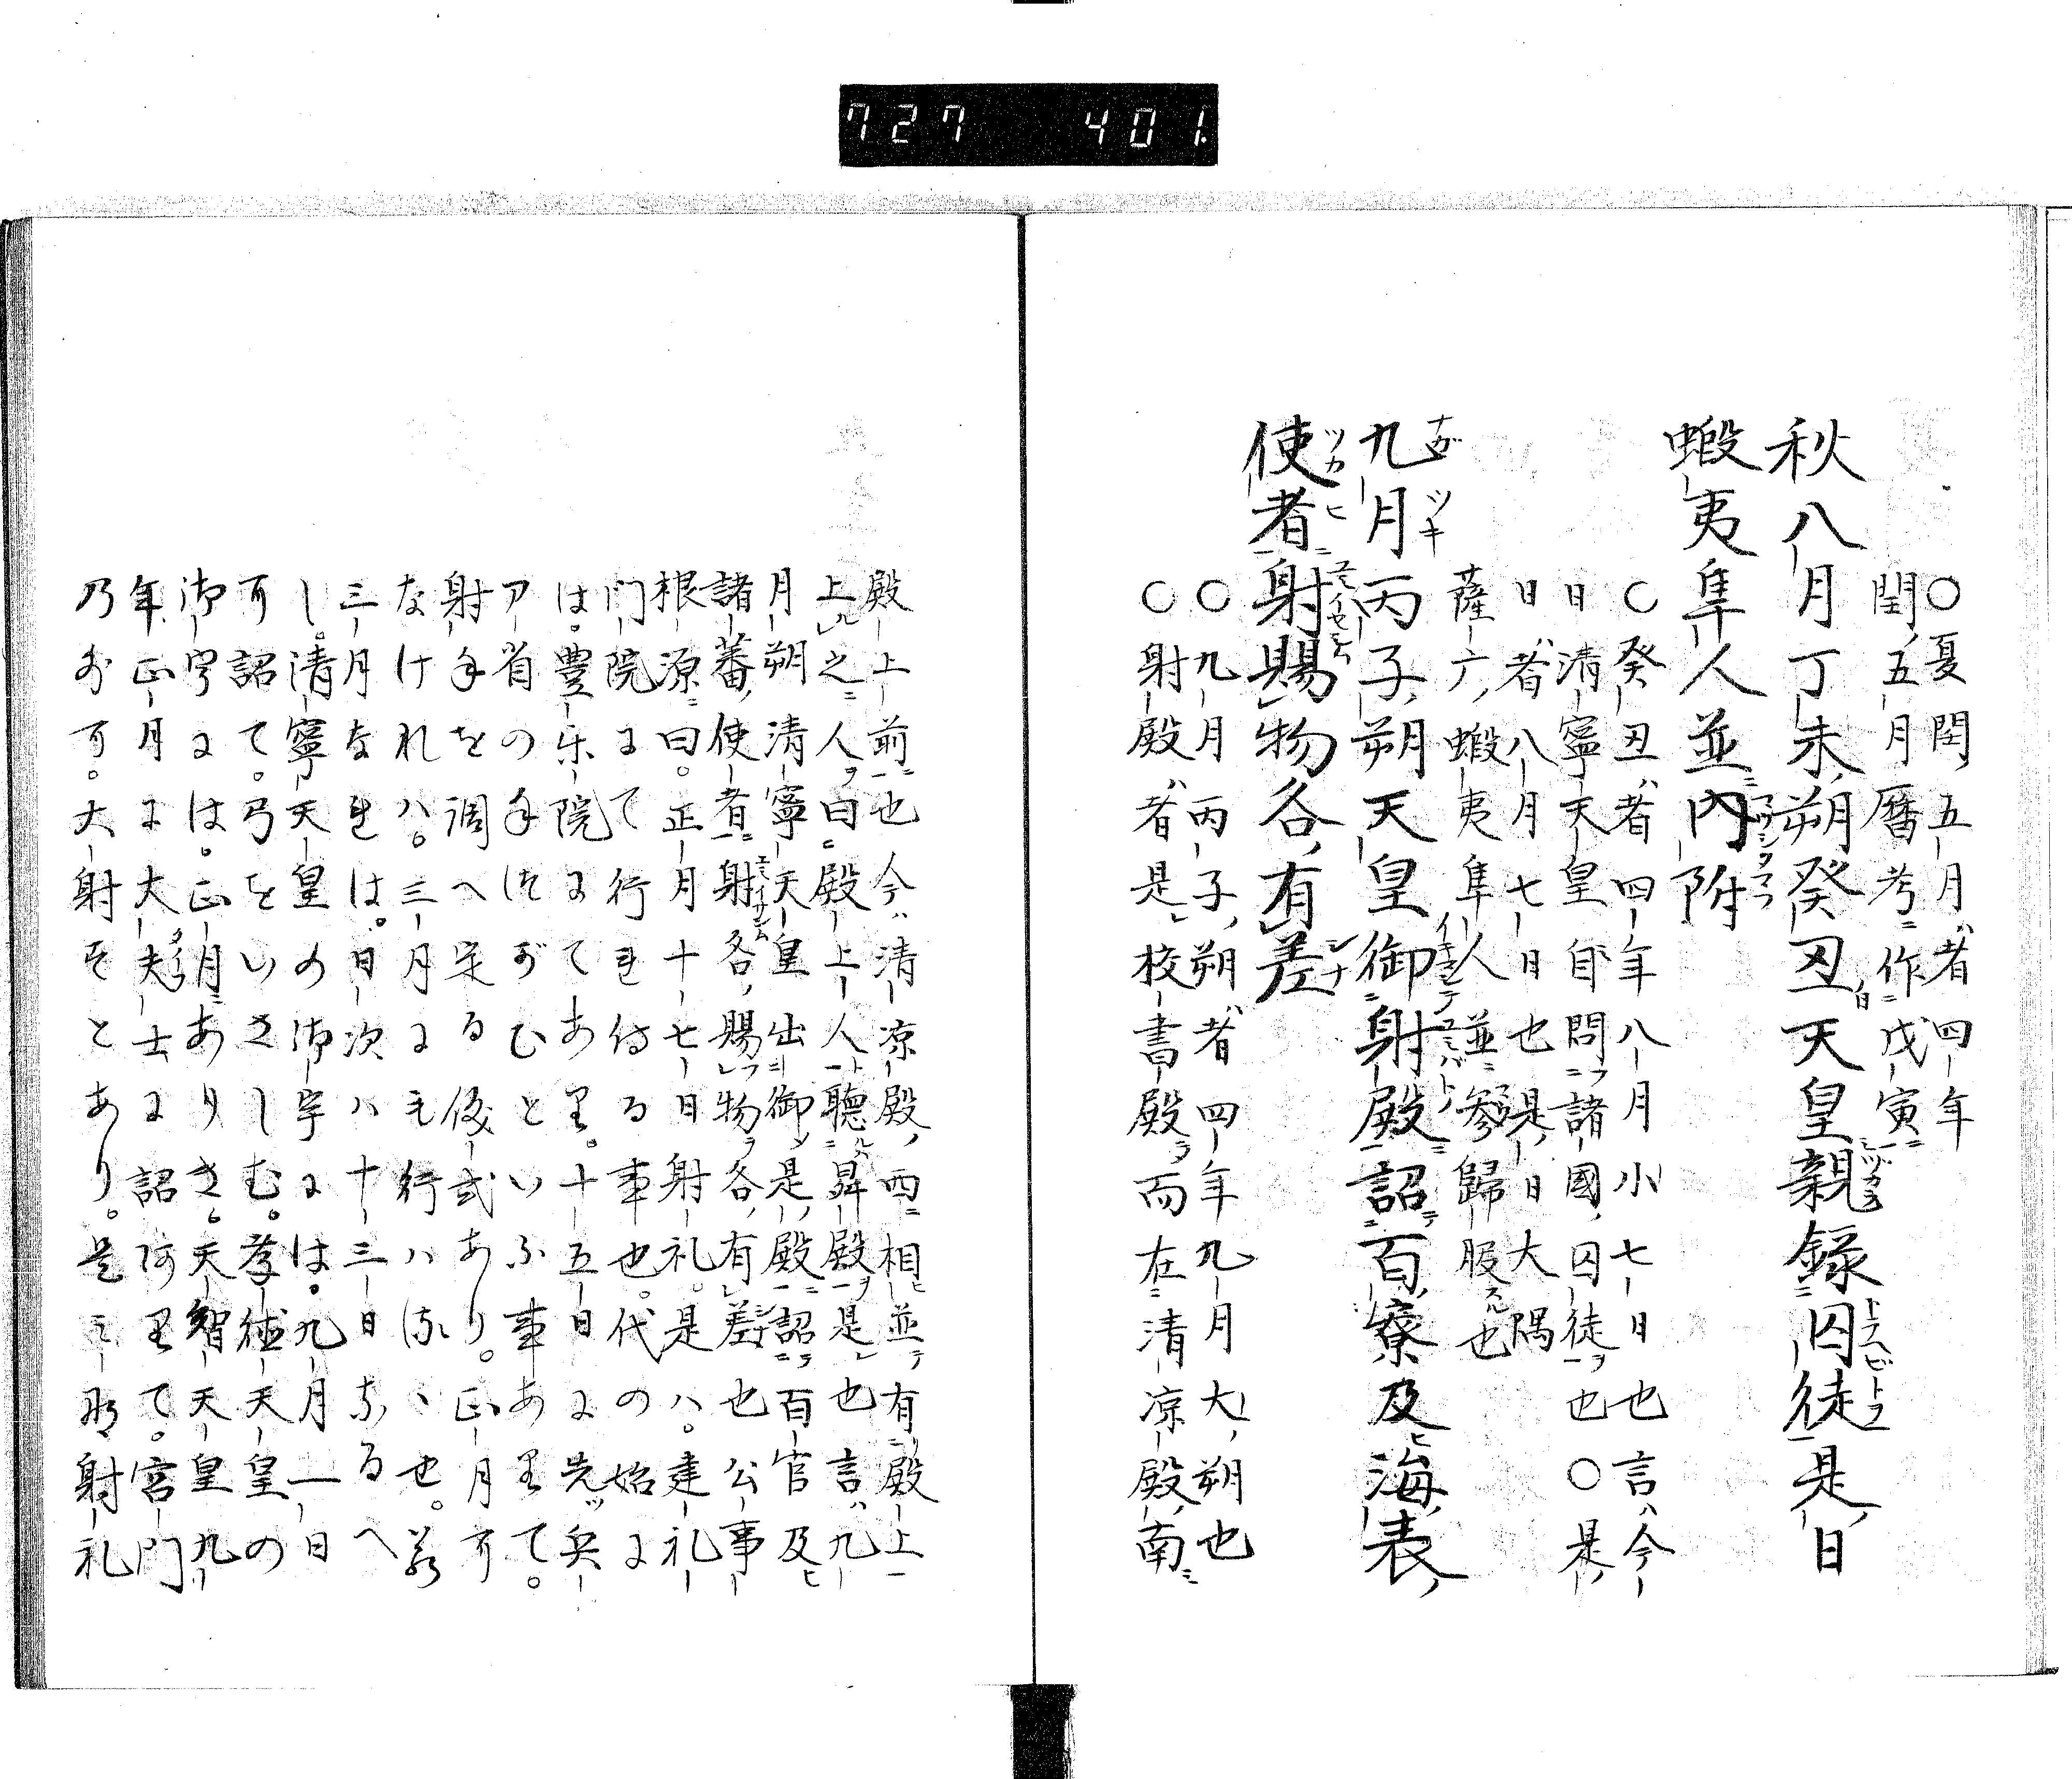 727 401
○夏閏五月者四年
閏五月暦考作戊寅
秋八月丁未朔癸丑天皇親録囚徒是日
蝦夷隼人並内附
○癸丑者四年八月小七日也言今
日清寧天皇自問諸國囚徒也○是
日者八月七日也是日大隅
薩六蝦夷隼人並參歸服也
九月丙子朔天皇御射殿詔百寮及海表
使者射賜物各有差
○九月丙子朔者四年九月大朔也
○射殿者是校書殿而在清凉殿南
殿上前也今清凉殿西相並有殿上
上之人曰殿上人聽昇殿是也言九
月朔清寧天皇出御是殿詔百官及
諸蕃使者射各賜物各有差也公事
根源曰。正月十七日射礼。是ハ。建礼
門院にて行れ侍る事也。代の始に
は。豊樂院にてあり。十五日に先兵
ア省の手つがひといふ事ありて。
射手を調へ定る儀式あり。正月可
なけれハ。三月にも行ハるゝ也。若
三月なれは。日次ハ十三日なるへ
し。清寧天皇の御宇には。九月一日
可詔て。弓をいさしむ。孝徳天皇の
御宇には。正月ありき。天智天皇九
年正月に大夫士に詔ありて。宮門
乃内可。大射すとあり。是三那射礼